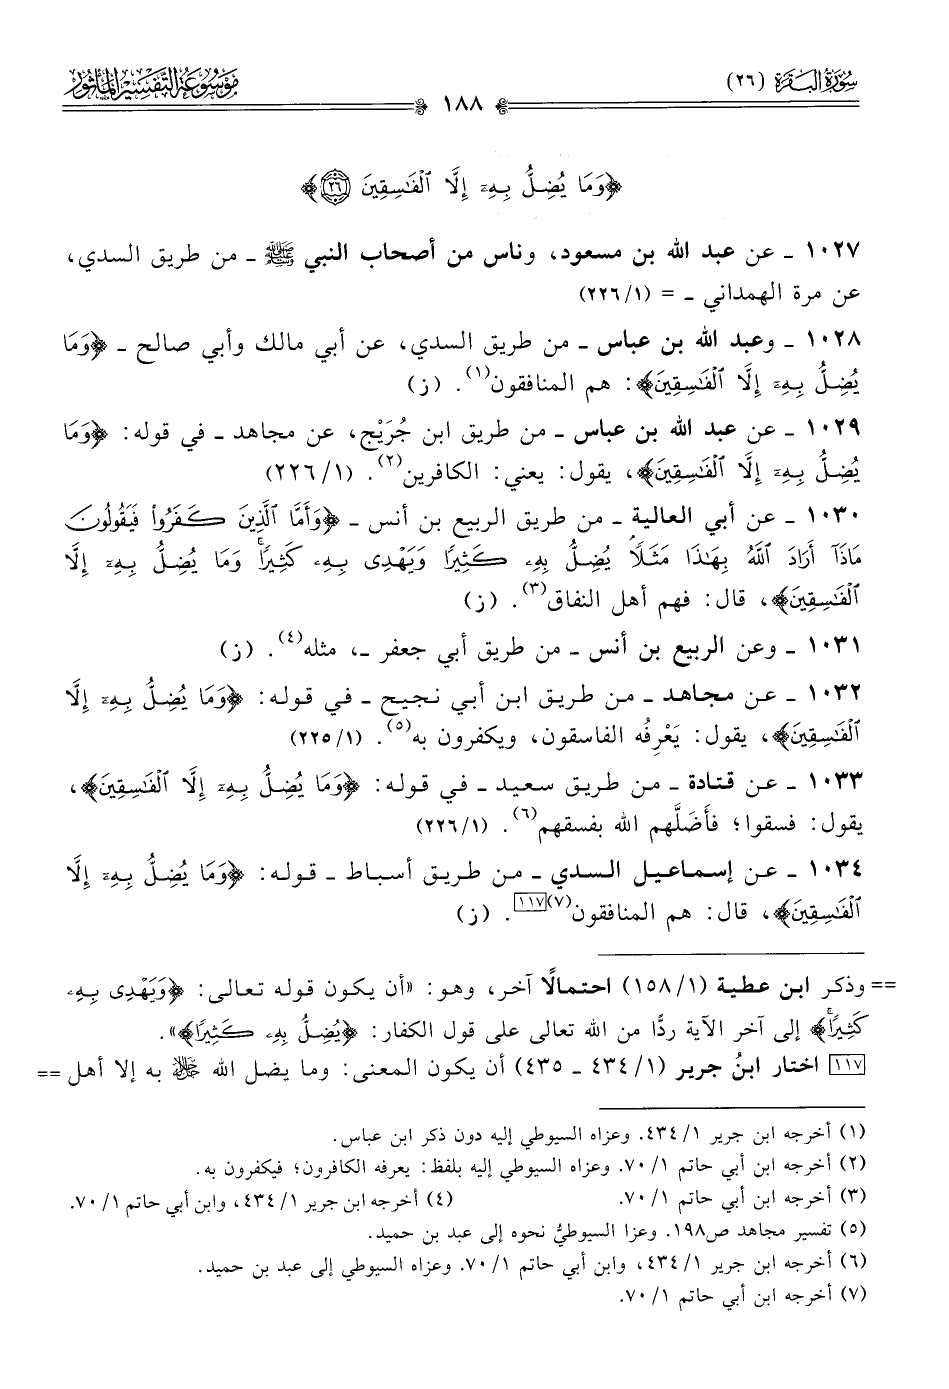 سورة البقرة (٢٦)
١٨٨
موسوعة التفسير المأثور
﴿وَمَا يُضِلُّ بِهِۦٓ إِلَّا ٱلْفَٰسِقِينَ ٢٦﴾
١٠٢٧ ـ عن عبد الله بن مسعود، وناس من أصحاب النبي ﷺ ـ من طريق السدي،
عن مرة الهمداني ـ = (٢٢٦/١)
١٠٢٨ ـ وعبد الله بن عباس ـ من طريق السدي، عن أبي مالك وأبي صالح ـ ﴿وَمَا
يُضِلُّ بِهِۦٓ إِلَّا ٱلْفَٰسِقِينَ﴾: هم المنافقون(١). (ز)
١٠٢٩ ـ عن عبد الله بن عباس ـ من طريق ابن جُرَيْج، عن مجاهد ـ في قوله: ﴿وَمَا
يُضِلُّ بِهِۦٓ إِلَّا ٱلْفَٰسِقِينَ﴾، يقول: يعني: الكافرين(٢). (٢٢٦/١)
١٠٣٠ ـ عن أبي العالية ـ من طريق الربيع بن أنس ـ ﴿وَأَمَّا ٱلَّذِينَ كَفَرُوا۟ فَيَقُولُونَ
مَاذَآ أَرَادَ ٱللَّهُ بِهَٰذَا مَثَلًا ۘ يُضِلُّ بِهِۦ كَثِيرًا وَيَهْدِى بِهِۦ كَثِيرًا ۚ وَمَا يُضِلُّ بِهِۦٓ إِلَّا
ٱلْفَٰسِقِينَ﴾، قال: فهم أهل النفاق(٣). (ز)
١٠٣١ ـ وعن الربيع بن أنس ـ من طريق أبي جعفر ـ، مثله(٤). (ز)
١٠٣٢ ـ عن مجاهد ـ من طريق ابن أبي نجيح ـ في قوله: ﴿وَمَا يُضِلُّ بِهِۦٓ إِلَّا
ٱلْفَٰسِقِينَ﴾، يقول: يَعْرِفُه الفاسقون، ويكفرون به(٥). (٢٢٥/١)
١٠٣٣ ـ عن قتادة ـ من طريق سعيد ـ في قوله: ﴿وَمَا يُضِلُّ بِهِۦٓ إِلَّا ٱلْفَٰسِقِينَ﴾،
يقول: فسقوا؛ فأَضَلَّهم الله بفسقهم(٦). (٢٢٦/١)
١٠٣٤ ـ عن إسماعيل السدي ـ من طريق أسباط ـ قوله: ﴿وَمَا يُضِلُّ بِهِۦٓ إِلَّا
ٱلْفَٰسِقِينَ﴾، قال: هم المنافقون(٧)[١١٧]. (ز)
== وذكر ابن عطية (١٥٨/١) احتمالًا آخر، وهو: «أن يكون قوله تعالى: ﴿وَيَهْدِى بِهِۦ
كَثِيرًا ۚ﴾ إلى آخر الآية ردًّا من الله تعالى على قول الكفار: ﴿يُضِلُّ بِهِۦ كَثِيرًا﴾».
[١١٧] اختار ابنُ جرير (٤٣٤/١ ـ ٤٣٥) أن يكون المعنى: وما يضل الله ﷻ به إلا أهل ==
(١) أخرجه ابن جرير ٤٣٤/١. وعزاه السيوطي إليه دون ذكر ابن عباس.
(٢) أخرجه ابن أبي حاتم ٧٠/١. وعزاه السيوطي إليه بلفظ: يعرفه الكافرون؛ فيكفرون به.
(٣) أخرجه ابن أبي حاتم ٧٠/١. (٤) أخرجه ابن جرير ٤٣٤/١، وابن أبي حاتم ٧٠/١.
(٥) تفسير مجاهد ص١٩٨. وعزا السيوطيُّ نحوه إلى عبد بن حميد.
(٦) أخرجه ابن جرير ٤٣٤/١، وابن أبي حاتم ٧٠/١. وعزاه السيوطي إلى عبد بن حميد.
(٧) أخرجه ابن أبي حاتم ٧٠/١.